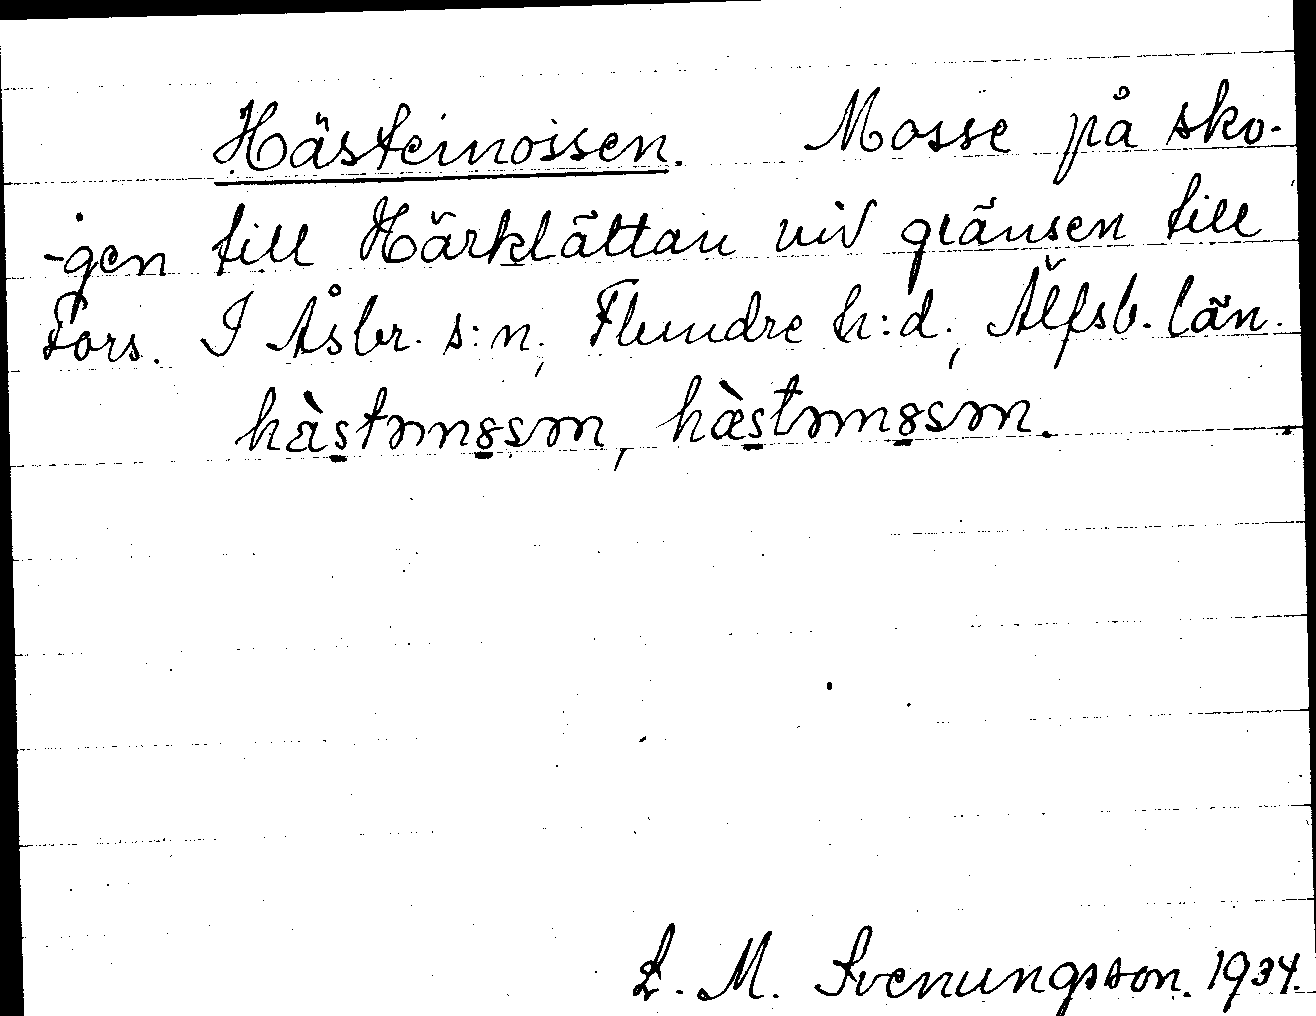 Hästemossen. Mosse på sko-
-gen till Härklättan vid gränsen till
Fors. I Åsbr. s:n, Flundre h:d., Älfsb. län.
hàstəmɞsən, hæ̀stəmɞsən.
L. M. Svenungsson. 1934.